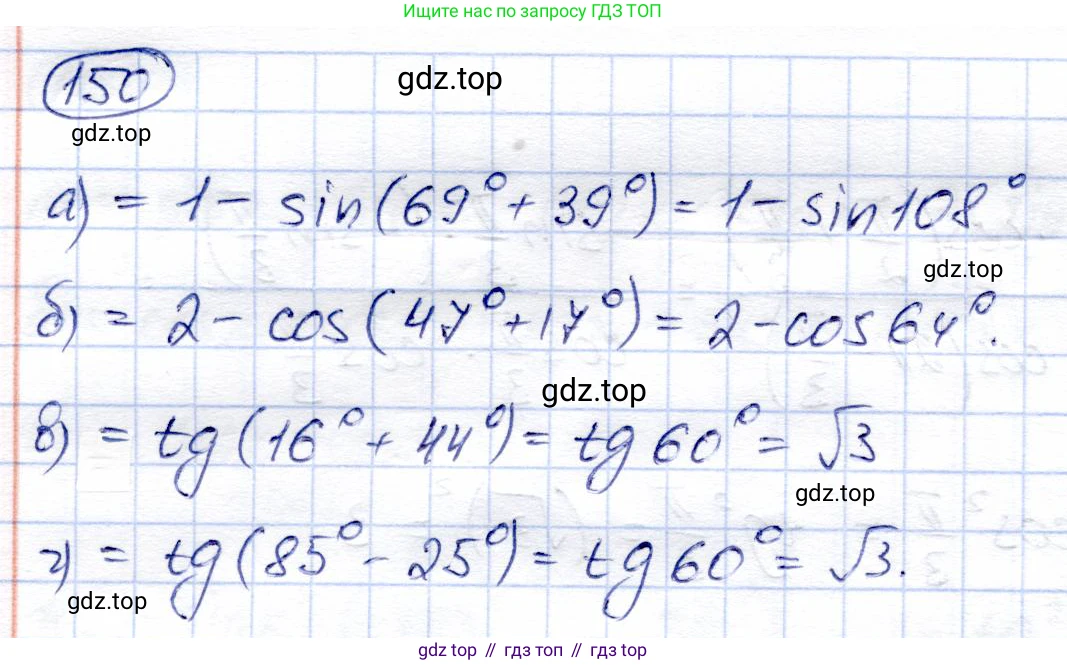 Ищите нас по запросу ГДЗ ТОП
150
gdz.top
gdz.top
а) = 1 - sin(69° + 39°) = 1 - sin 108°
gdz.top
б) = 2 - cos(47° + 17°) = 2 - cos 64°.
gdz.top
в) = tg(16° + 44°) = tg 60° = √3
gdz.top
г) = tg(85° - 25°) = tg 60° = √3.
gdz.top
gdz top // гдз топ // gdz top